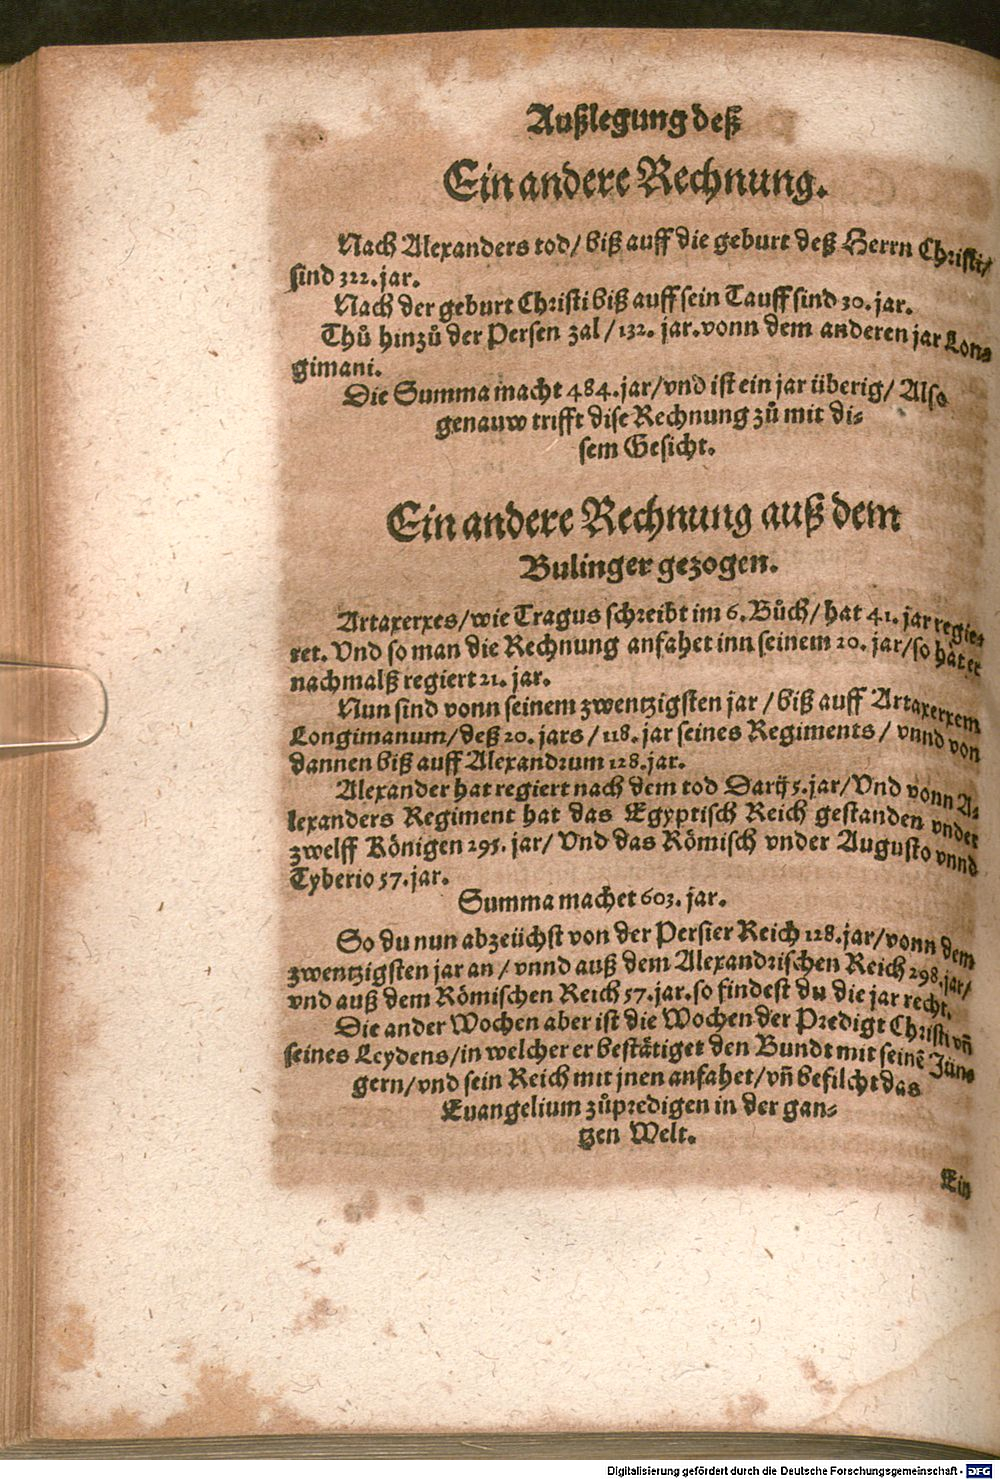 Außlegung deß
Ein andere Rechnung.
Nach Alexanders tod/ biß auff die geburt deß Herrn Christi/
sind 322. jar.
Nach der geburt Christi biß auff sein Tauff sind 30. jar.
Thů hinzů der Persen zal / 132. jar. vonn dem anderen jar Lon⸗
gimani.
Die Summa macht 484. jar/vnd ist ein jar überig/ Also
genauw trifft dise Rechnung zů mit di⸗
sem Gesicht.
Ein andere Rechnung auß dem
Bulinger gezogen.
Artaxerxes/wie Tragus schreibt im 6. Bůch/ hat 41. jar regie⸗
ret. Vnd so man die Rechnung anfahet inn seinem 20. jar/so hat er
nachmalß regiert 21. jar.
Nun sind vonn seinem zwentzigsten jar / biß auff Artaxerxem
Longimanum/deß 20. jars / 118. jar seines Regiments / vnnd von
dannen biß auff Alexandrum 128. jar.
Alexander hat regiert nach dem tod Darij 5. jar/ Vnd vonn A⸗
lexanders Regiment hat das Egyptisch Reich gestanden vnder
zwelff Königen 295. jar/ Vnd das Römisch vnder Augusto vnnd
Tyberio 57. jar.
Summa machet 603. jar.
So du nun abzeüchst von der Persier Reich 128. jar/vonn dem
zwentzigsten jar an / vnnd auß dem Alexandrischen Reich 298. jar/
vnd auß dem Römischen Reich 57. jar. so findest du die jar recht.
Die ander Wochen aber ist die Wochen der Predigt Christi vñ
seines Leydens/in welcher er bestätiget den Bundt mit seinẽ Jün⸗
gern/vnd sein Reich mit jnen anfahet/vñ befilcht das
Euangelium zůpredigen in der gan⸗
tzen Welt.
Ein
Digitalisierung gefördert durch die Deutsche Forschungsgemeinschaft - DFG